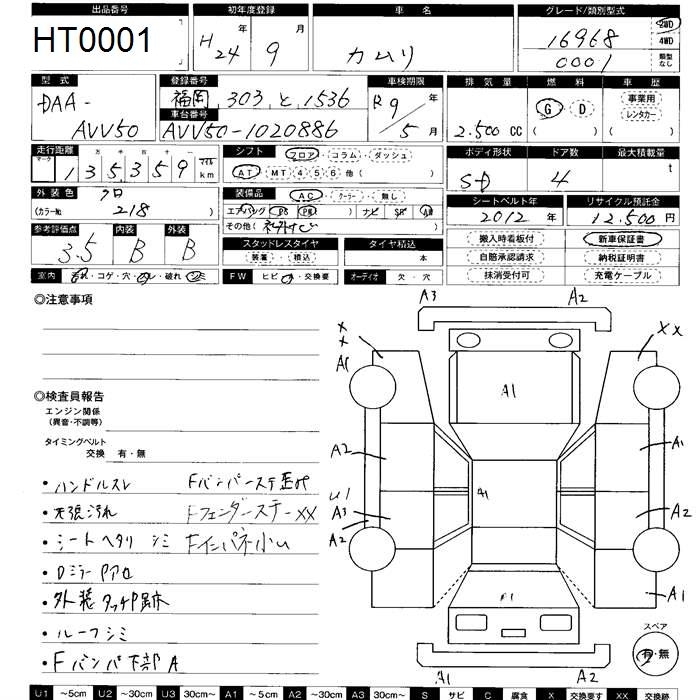 出品番号 初年度登録 車名 グレード/類別型式
HT0001 H24年 9月 カムリ 16968 2WD 4WD
0001 類型なし
型式 登録番号 車検期限 排気量 燃料 車歴
DAA-AVV50 福岡 303 と 1536 R9年 5月 2.500CC G・D 事業用 レンタカー
車台番号
AVV50-1020886
走行距離 シフト ボディ形状 ドア数 最大積載量
マーク 十 万 千 百 十 一 マイル km フロア・コラム・ダッシュ SD 4 t
135,359 AT・MT 4 5 6 他( )
外装色 クロ 装備品 AC・クーラー・無し シートベルト年 リサイクル預託金
(カラーNo. 218 ) エアバッグ PS PW ナビ SR AW 2012年 12,500円
その他( )
参考評価点 内装 外装 搬入時看板付 新車保証書
3.5 B B スタッドレスタイヤ タイヤ積込 自賠承認請求 納税証明書
装着・積込 本 抹消受付可 充電ケーブル
室内 汚れ・コゲ・穴・スレ・破れ・シミ FW ヒビ・・交換要 オーディオ 欠・穴
◎注意事項
A3 A2
X X XX
A1 A1
◎検査員報告
エンジン関係
(異音・不調等)
タイミングベルト
交換 有・無
A2 A1
・ハンドルスレ Fバンパーステ歪
U1 A1
・天張汚れ FフェンダーステーXX
A3 A2
・シートヘタリ シミ Fインパネ小U
A2
・Dミラー
・外装タッチP跡 F1 A1
・ルーフシミ スペア
有・無
・Fバンパ下部A A1 A2
U1 ~5cm U2 ~30cm U3 30cm~ A1 ~5cm A2 ~30cm A3 30cm~ S サビ C 腐食 X 交換要す XX 交換跡